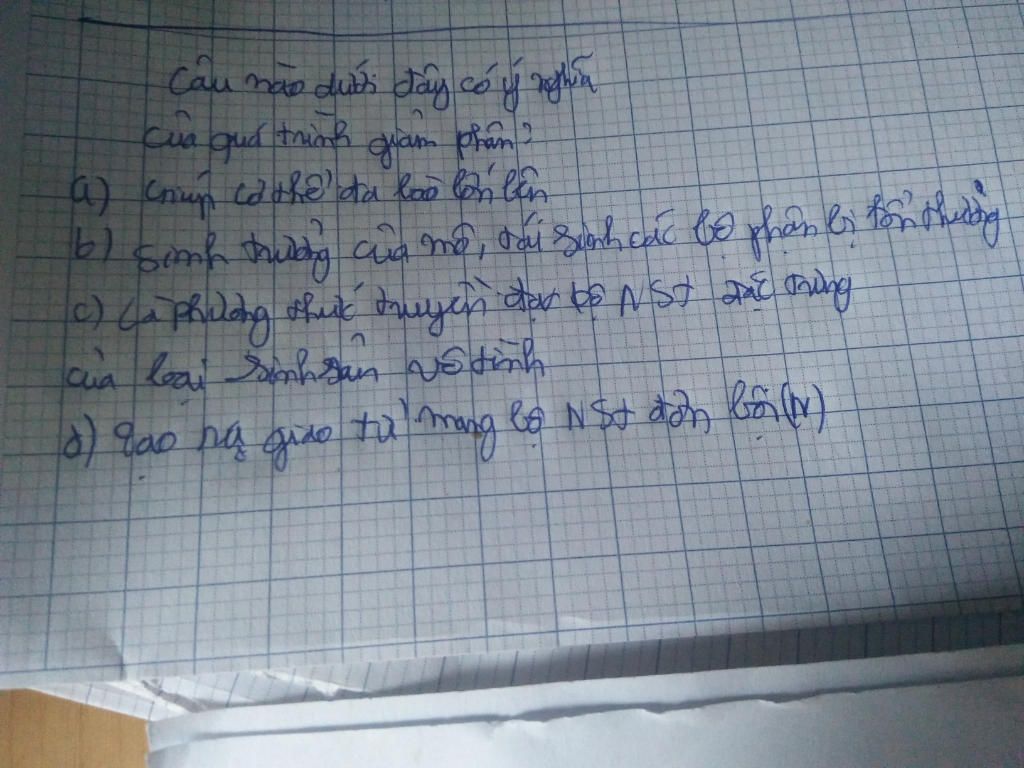 Câu nào dưới đây có ý nghĩa
của quá trình giảm phân?
a) Giúp cơ thể đa bào lớn lên
b) Sinh trưởng của mô, tái sinh các bộ phận bị tổn thương
c) Là phương thức truyền đạt bộ NST đặc trưng
của loại sinh sản vô tính
d) Tạo ra giao tử mang bộ NST đơn bội (N)